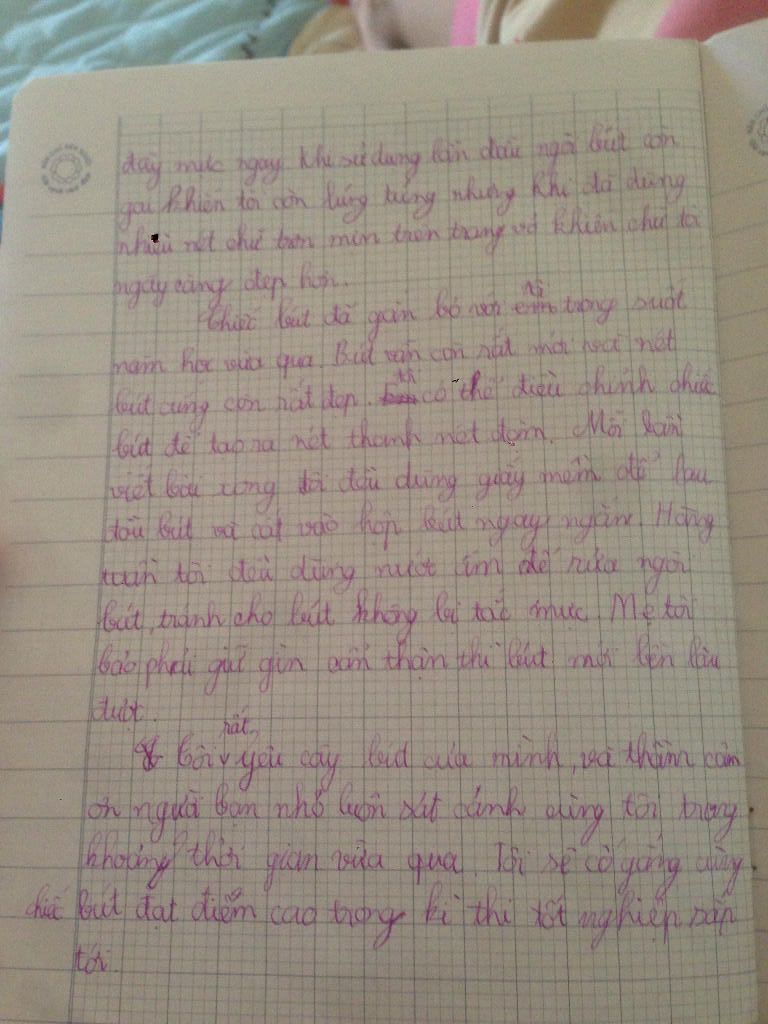 đầy mực ngay khi sử dụng lần đầu ngòi bút còn
gai khiến tôi còn lúng túng nhưng khi đã dùng
nhiều nét chữ trơn mịn trên trang vở khiến chữ tôi
ngày càng đẹp hơn.
Chiếc bút đã gắn bó với tôi trong suốt
năm học vừa qua. Bút vẫn còn rất mới và nét
bút cũng còn rất đẹp. tôi có thể điều chỉnh chiếc
bút để tạo ra nét thanh nét đậm. Mỗi lần
viết bài xong tôi đều dùng giấy mềm để lau
đầu bút và cất vào hộp bút ngay ngắn. Hằng
tuần tôi đều dùng nước ấm để rửa ngòi
bút, tránh cho bút không bị tắc mực. Mẹ tôi
bảo phải giữ gìn cẩn thận thì bút mới bền lâu
được.
Tôi rất yêu cây bút của mình, và thầm cảm
ơn người bạn nhỏ luôn sát cánh cùng tôi trong
khoảng thời gian vừa qua. Tôi sẽ cố gắng cùng
chiếc bút đạt điểm cao trong kì thi tốt nghiệp sắp
tới.